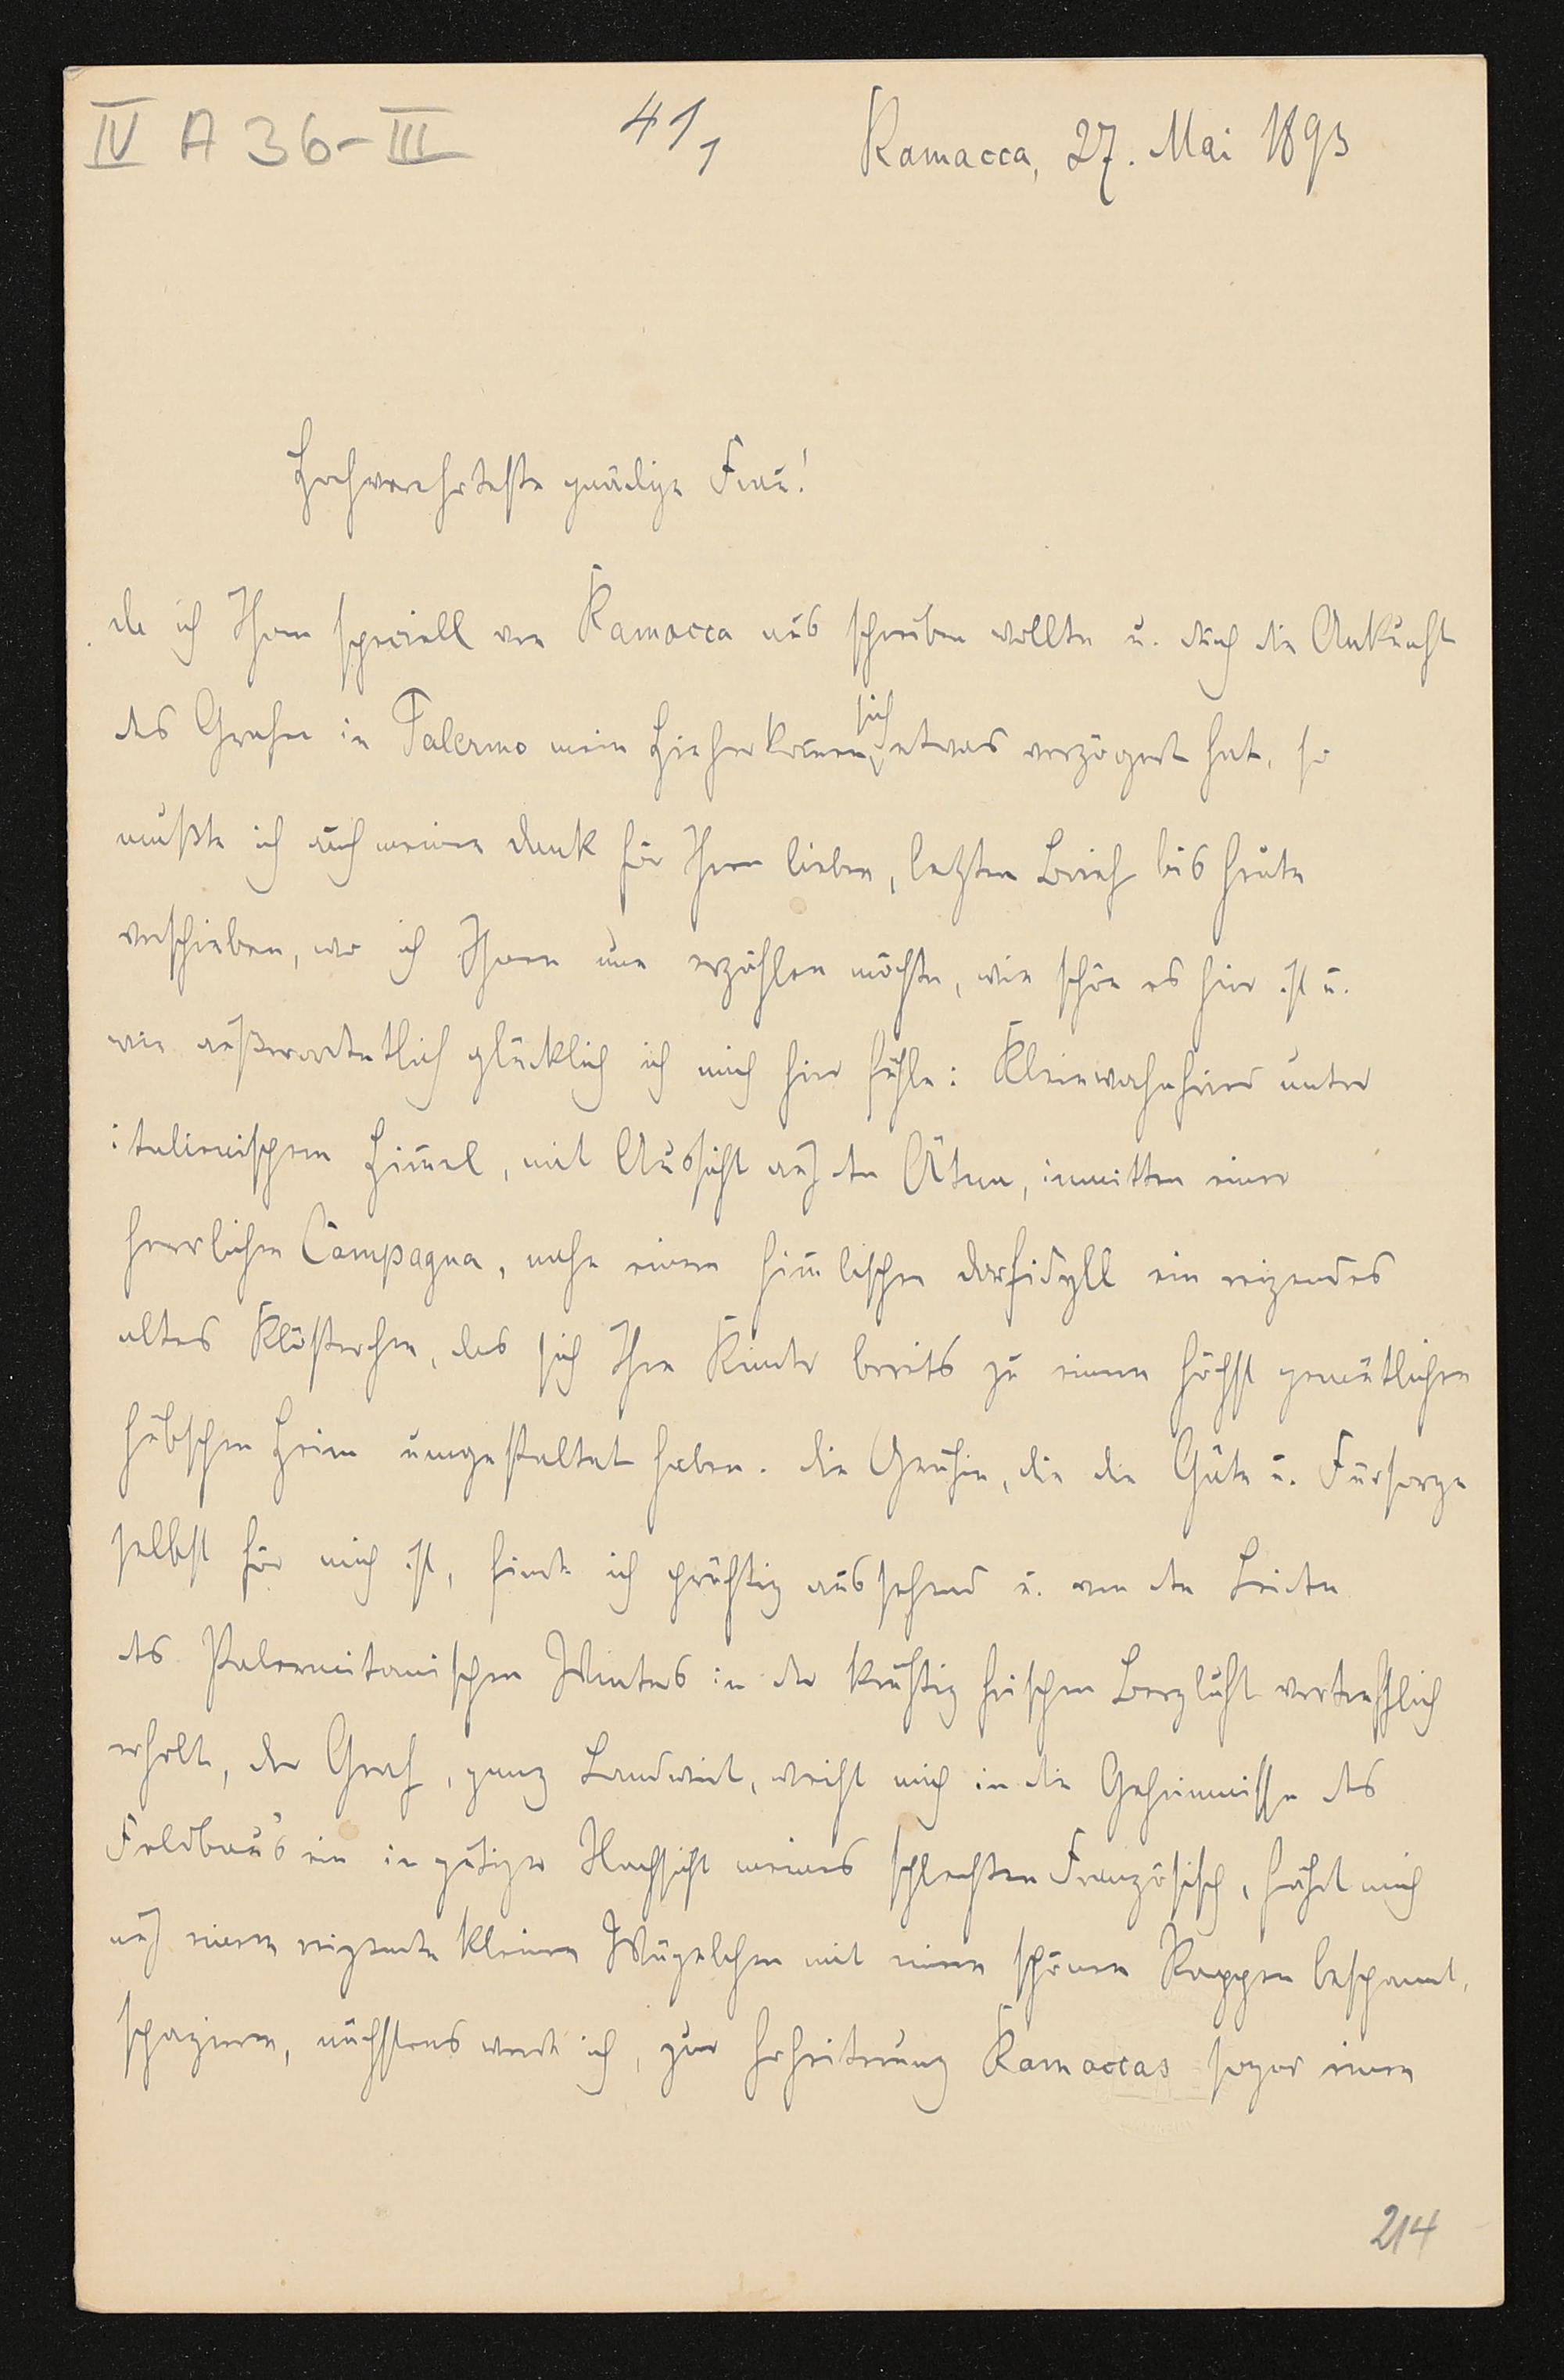 IV A 36-III
41,1
Ramacca, 27. Mai 1893
Hochverehrteste gnädige Frau!
da ich Ihnen speciell von Ramacca aus schreiben wollte u. durch die Ankunft
des Grafen in Palermo mein Hieherkom̅en sich etwas verzögert hat, so
mußte ich auch meinen Dank für Ihren lieben, letzten Brief bis heute
verschieben, wo ich Ihnen nun erzählen möchte, wie schön es hier ist u.
wie außerordentlich glücklich ich mich hier fühle: Kleinwahnfried unter
italienischem Him̅el, mit Aussicht auf den Ätna, inmitten einer
herrlichen Campagna, nahe einem him̅lischen Dorfidyll ein reizendes
altes Klösterchen, das sich Ihre Kinder bereits zu einem höchst gemütlichen
hübschen Heim umgestaltet haben. Die Gräfin, die die Güte u. Fürsorge
selbst für mich ist, finde ich prächtig aussehend u. von den Leiden
des Palermitanischen Winters in der kräftig frischen Bergluft vortrefflich
erholt, der Graf, ganz Landwirt, weiht mich in die Geheimnisse des
Feldbau's ein in gütiger Nachsicht meines schlechten Französisch, fährt mich
auf einem reizenden kleinen Wägelchen mit einem schönen Rappen bespannt,
spazieren, nächstens werde ich, zur Erheiterung Ramaccas sogar einen
214